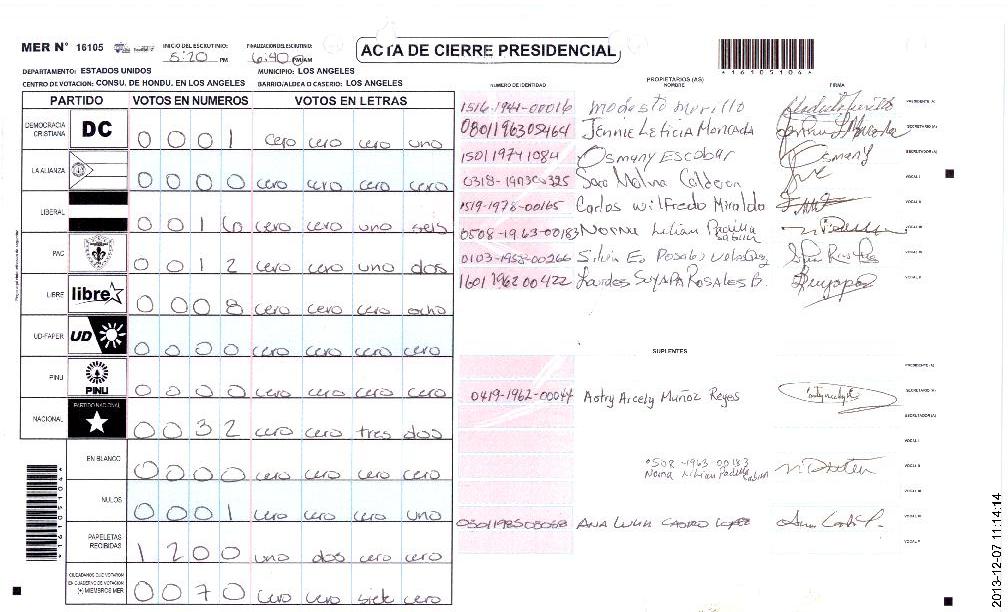 MER Nº 16105
INICIO DEL ESCRUTINIO: 5:20 PM
FINALIZACIÓN DEL ESCRUTINIO: 6:40 PM/AM
ACTA DE CIERRE PRESIDENCIAL
16105104
DEPARTAMENTO: ESTADOS UNIDOS MUNICIPIO: LOS ANGELES
CENTRO DE VOTACION: CONSU. DE HONDU. EN LOS ANGELES BARRIO/ALDEA O CASERIO: LOS ANGELES
PARTIDO VOTOS EN NUMEROS VOTOS EN LETRAS
DEMOCRACIA CRISTIANA DC 0 0 0 1 cero cero cero uno
LA ALIANZA 0 0 0 0 cero cero cero cero
LIBERAL 0 0 1 6 cero cero uno seis
PAC 0 0 1 2 cero cero uno dos
LIBRE libre 0 0 0 8 cero cero cero ocho
UD-FAPER UD 0 0 0 0 cero cero cero cero
PINU PINU 0 0 0 0 cero cero cero cero
NACIONAL PARTIDO NACIONAL 0 0 3 2 cero cero tres dos
EN BLANCO 0 0 0 0 cero cero cero cero
NULOS 0 0 0 1 cero cero cero uno
PAPELETAS RECIBIDAS 1 2 0 0 uno dos cero cero
CIUDADANOS QUE VOTARON EN CUADERNO DE VOTACION (+) MIEMBROS MER 0 0 7 0 cero cero siete cero
PROPIETARIOS (AS)
NUMERO DE IDENTIDAD NOMBRE FIRMA
1516-1941-00016 Modesto Murillo PRESIDENTE (A)
0801196305464 Jennie Leticia Moncada SECRETARIO (A)
1501 1974 1084 Osmany Escobar Osmany ESCRUTADOR (A)
Sara Molina Calderon VOCAL I
1519-1978-00165 Carlos Wilfredo Miraldo VOCAL II
0508-1963-00183 Norma Lilian Padilla VOCAL III
0103-1958-00266 Silvia E. Rosales
1601 1962 00422 Lourdes SUYAPA ROSALES B.
SUPLENTES
PRESIDENTE (A)
0419-1962-00044 Astry Arcely Muñoz Reyes SECRETARIO (A)
ESCRUTADOR (A)
VOCAL I
0508-1963-00183
Norma Lilian Padilla VOCAL II
VOCAL III
0501198508068 ANA LUCIA CASTRO LOPEZ
VOCAL V
16105104
2013-12-07 11:14:14